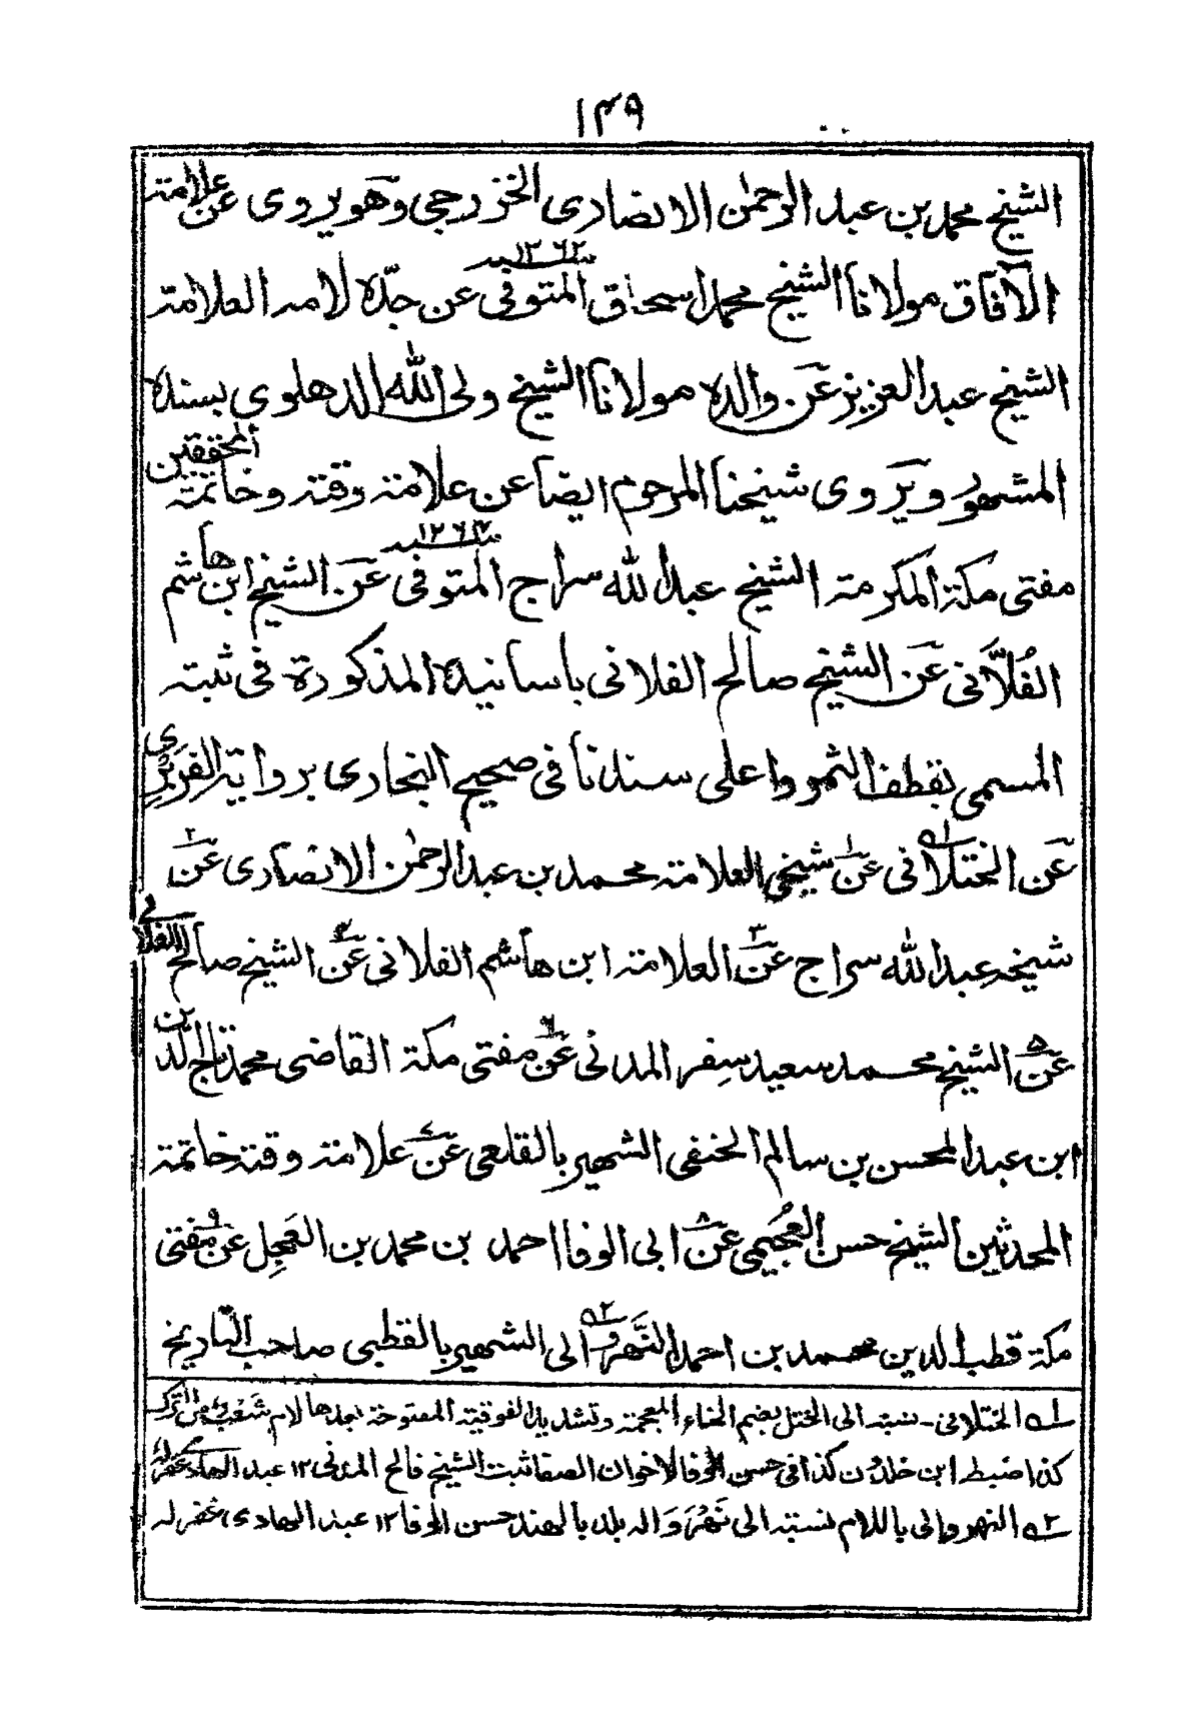 ١٣٩
الشيخ محمد بن عبد الرحمٰن الانصارى الخزرجي وهو يروى عن علامة
الآفاق مولانا الشيخ محمد اسحاق المتوفى سنة ١٢٦٢ عن جدّه لامه العلامة
الشيخ عبد العزيز عن والده مولانا الشيخ ولى الله الدهلوى بسنده
المشهور ويروى شيخنا المرحوم ايضا عن علامة وقته وخاتمة المحققين
مفتى مكة المكرمة الشيخ عبد الله سراج المتوفى سنة ١٢٦٤ عن الشيخ ابن هاشم
الفُلاَّنى عن الشيخ صالح الفلانى باسانيده المذكورة فى ثبته
المسمى بقطف الثمر واعلى سندنا فى صحيح البخارى برواية الفَرَبْرِى
عن الختلانى ١ه عن ١ شيخي العلامة محمد بن عبد الرحمٰن الانصارى عن ٢
شيخه عبد الله سراج عن ٣ العلامة ابن هاشم الفلانى عن ٤ الشيخ صالح الفلانى
عن ٥ الشيخ محمد سعيد سفر المدنى عن ٦ مفتى مكة القاضى محمد تاج الدين
ابن عبد المحسن بن سالم الحنفى الشهير بالقلعى عن ٧ علامة وقته خاتمة
المحدثين الشيخ حسن العُجَيمى عن ٨ ابى الوفا احمد بن محمد بن العَجِل عن ٩ مفتى
مكة قطب الدين محمد بن احمد النَّهْروَالى ٢ه الشهير بالقطبى صاحب التاريخ
١ه الخُتلانى - نسبة الى الختل بضم الخاء المعجمة وتشديد الفوقية المفتوحة بعدها لام شعب من الترك
كذا ضبطه ابن خلدون كذا فى حسن الوفا لاخوان الصفا ثبت الشيخ فالح المدنى ١٢ عبد الهادى غفر له
٢ه النهروالى باللام نسبة الى نَهْرَوَاله بلد بالهند حسن الوفا ١٢ عبد الهادى غفر له